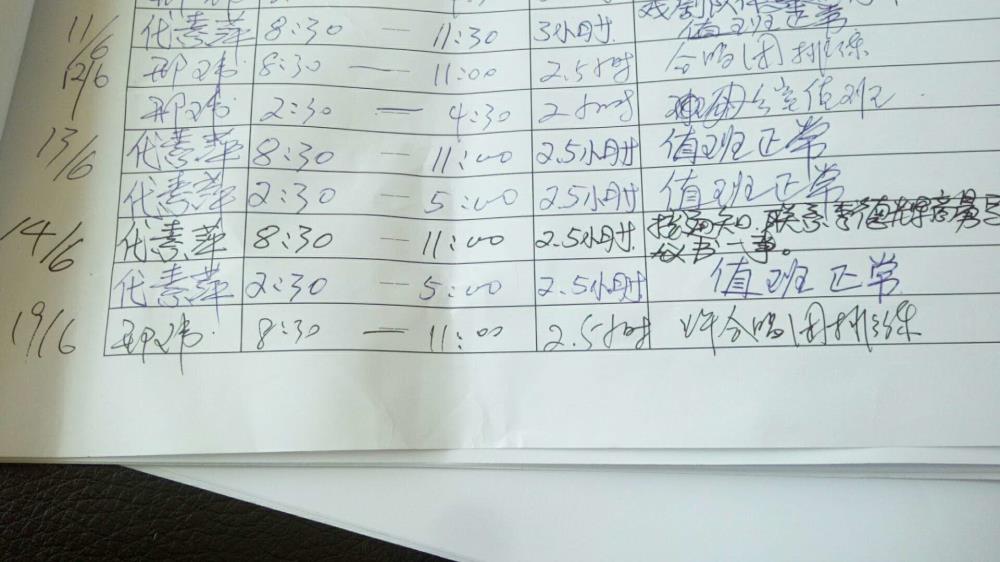 11/6 代素萍 8:30 — 11:30 3小时 值班正常
12/6 邢玮 8:30 — 11:00 2.5小时 合唱团排练
邢玮 2:30 — 4:30 2小时 办公室值班
13/6 代素萍 8:30 — 11:00 2.5小时 值班正常
代素萍 2:30 — 5:00 2.5小时 值班正常
14/6 代素萍 8:30 — 11:00 2.5小时 接通知,联系李德
一事。
代素萍 2:30 — 5:00 2.5小时 值班正常
19/6 邢玮 8:30 — 11:00 2.5小时 合唱团排练